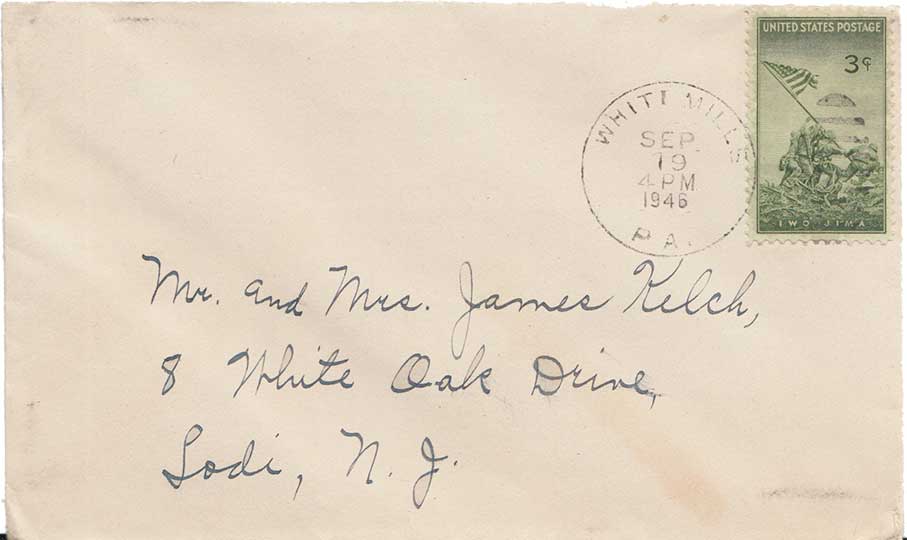 UNITED STATES POSTAGE
3¢
WHITE MILLS
SEP
19
4 PM
1946
PA.
IWO JIMA
Mr. and Mrs. James Kelch,
8 White Oak Drive,
Lodi, N. J.